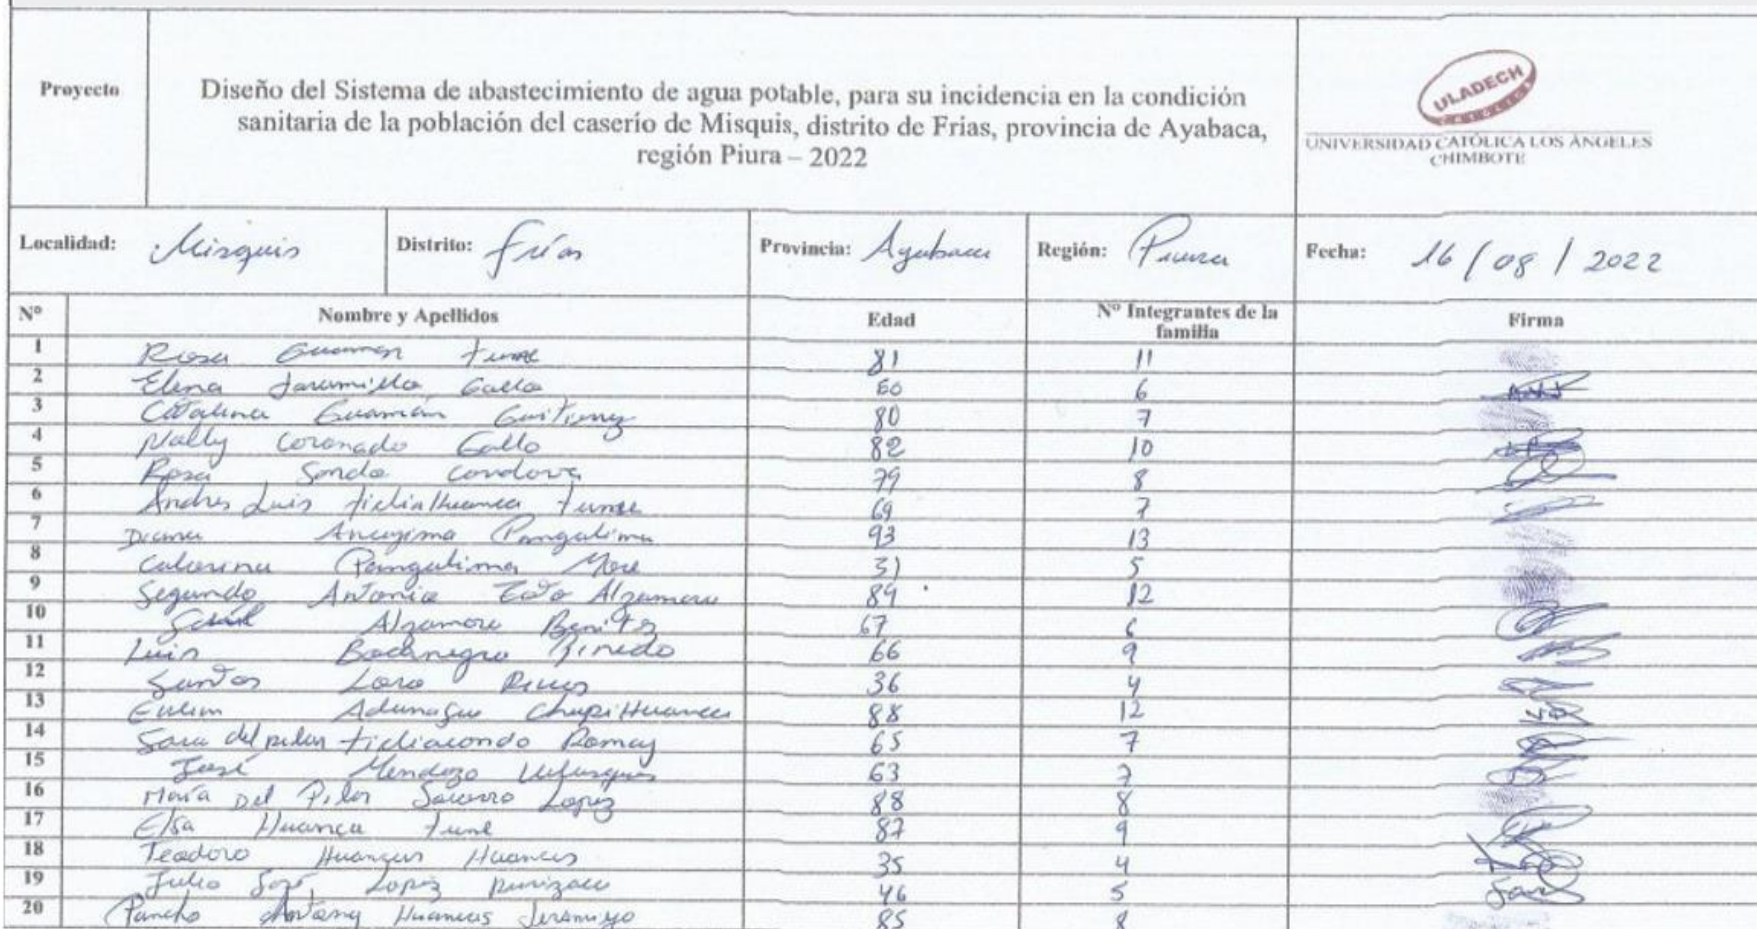 Proyecto
Diseño del Sistema de abastecimiento de agua potable, para su incidencia en la condición
sanitaria de la población del caserío de Misquis, distrito de Frias, provincia de Ayabaca,
región Piura – 2022
ULADECH
UNIVERSIDAD CATÓLICA LOS ÁNGELES
CHIMBOTE
Localidad: Misquis Distrito: Frías Provincia: Ayabaca Región: Piura Fecha: 16/08/2022
Nº Nombre y Apellidos Edad Nº Integrantes de la familia Firma
1 Rosa Guaman Tume 81 11
2 Elena Jaramillo Gallo 60 6
3 Catalina Guamán 80 7
4 Nally Coronado Gallo 82 10
5 Rosa Condova 79 8
6 Andres Luis Tume 69 7
7 Pangalima 93 13
8 Pangalima More 31 5
9 Segundo Antonio Alzamora 89 12
10 Alzamora Benites 67 6
11 Luis Pinedo 66 9
12 Santos 36 4
13 ChupiHuanca 88 12
14 Sara del pilar 65 7
15 José Mendoza 63 7
16 María Del Pilar Lopez 88 8
17 Elsa Huanca Tume 87 9
18 Teodoro Huancas Huancas 35 4
19 Julio José Lopez 46 5
20 Pancho Antony Huancas 85 8